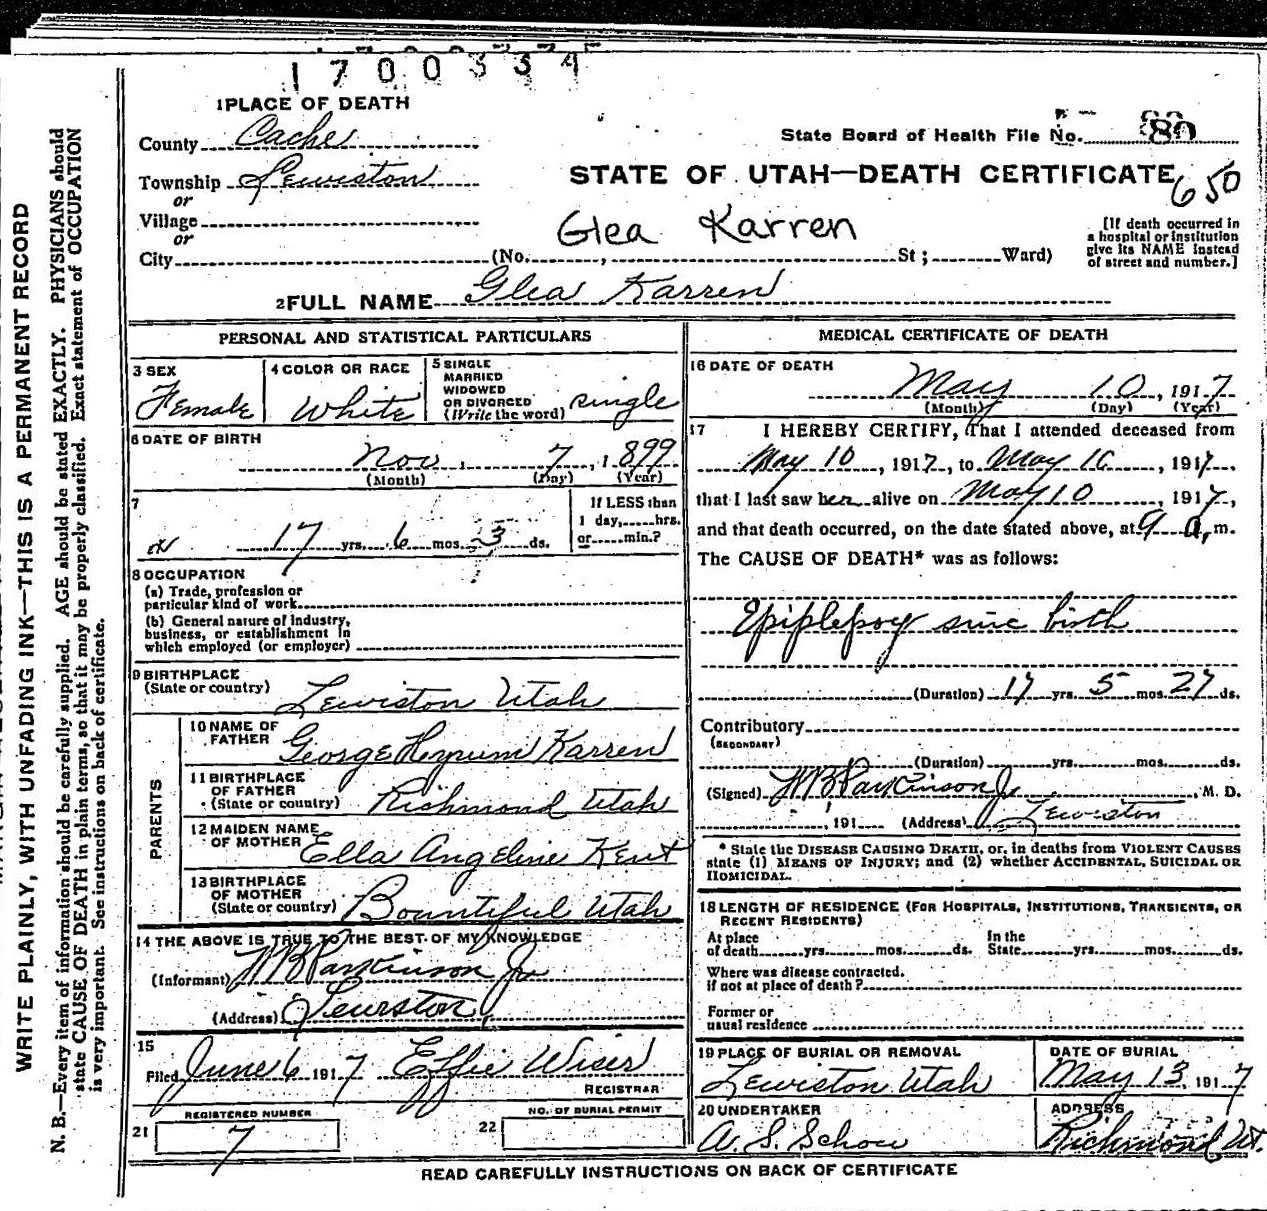 1700334
1 PLACE OF DEATH
County Cache
State Board of Health File No. 80
Township Lewiston
STATE OF UTAH—DEATH CERTIFICATE
650
or
Village
or
Glea Karren
[If death occurred in
a hospital or institution
give its NAME instead
of street and number.]
City (No. , St ; Ward)
2 FULL NAME Glea Karren
PERSONAL AND STATISTICAL PARTICULARS
3 SEX
Female
4 COLOR OR RACE
White
5 SINGLE
MARRIED
WIDOWED
OR DIVORCED
(Write the word) single
6 DATE OF BIRTH
Nov , 7 , 1899
(Month) (Day) (Year)
7
17 yrs. 6 mos. 3 ds.
If LESS than
1 day, hrs.
or min.?
8 OCCUPATION
(a) Trade, profession or
particular kind of work
(b) General nature of industry,
business, or establishment in
which employed (or employer)
9 BIRTHPLACE
(State or country) Lewiston Utah
PARENTS
10 NAME OF
FATHER George Hyrum Karren
11 BIRTHPLACE
OF FATHER
(State or country) Richmond Utah
12 MAIDEN NAME
OF MOTHER Ella Angeline Kent
13 BIRTHPLACE
OF MOTHER
(State or country) Bountiful Utah
14 THE ABOVE IS TRUE TO THE BEST OF MY KNOWLEDGE
(Informant) WB Parkinson Jr
(Address) Lewiston
15
Filed June 6 1917 Effie Wiser
REGISTRAR
REGISTERED NUMBER
21 7
NO. OF BURIAL PERMIT
22
MEDICAL CERTIFICATE OF DEATH
16 DATE OF DEATH
May 10, 1917
(Month) (Day) (Year)
17 I HEREBY CERTIFY, That I attended deceased from
May 10, 1917, to May 10, 1917,
that I last saw her alive on May 10, 1917,
and that death occurred, on the date stated above, at 9 a, m.
The CAUSE OF DEATH* was as follows:
Epiplepsy sinc birth
(Duration) 17 yrs. 5 mos. 27 ds.
Contributory
(SECONDARY)
(Duration) yrs. mos. ds.
(Signed) WB Parkinson Jr, M. D.
, 191 (Address) Lewiston
* State the DISEASE CAUSING DEATH, or, in deaths from VIOLENT CAUSES
state (1) MEANS OF INJURY; and (2) whether ACCIDENTAL, SUICIDAL OR
HOMICIDAL.
18 LENGTH OF RESIDENCE (FOR HOSPITALS, INSTITUTIONS, TRANSIENTS, OR
RECENT RESIDENTS)
At place
of death yrs. mos. ds.
In the
State yrs. mos. ds.
Where was disease contracted.
if not at place of death?
Former or
usual residence
19 PLACE OF BURIAL OR REMOVAL
Lewiston Utah
DATE OF BURIAL
May 13, 1917
20 UNDERTAKER
A. S. Schow
ADDRESS
Richmond Ut.
READ CAREFULLY INSTRUCTIONS ON BACK OF CERTIFICATE
WRITE PLAINLY, WITH UNFADING INK—THIS IS A PERMANENT RECORD
N. B.—Every item of information should be carefully supplied. AGE should be stated EXACTLY. PHYSICIANS should
state CAUSE OF DEATH in plain terms, so that it may be properly classified. Exact statement of OCCUPATION
is very important. See instructions on back of certificate.